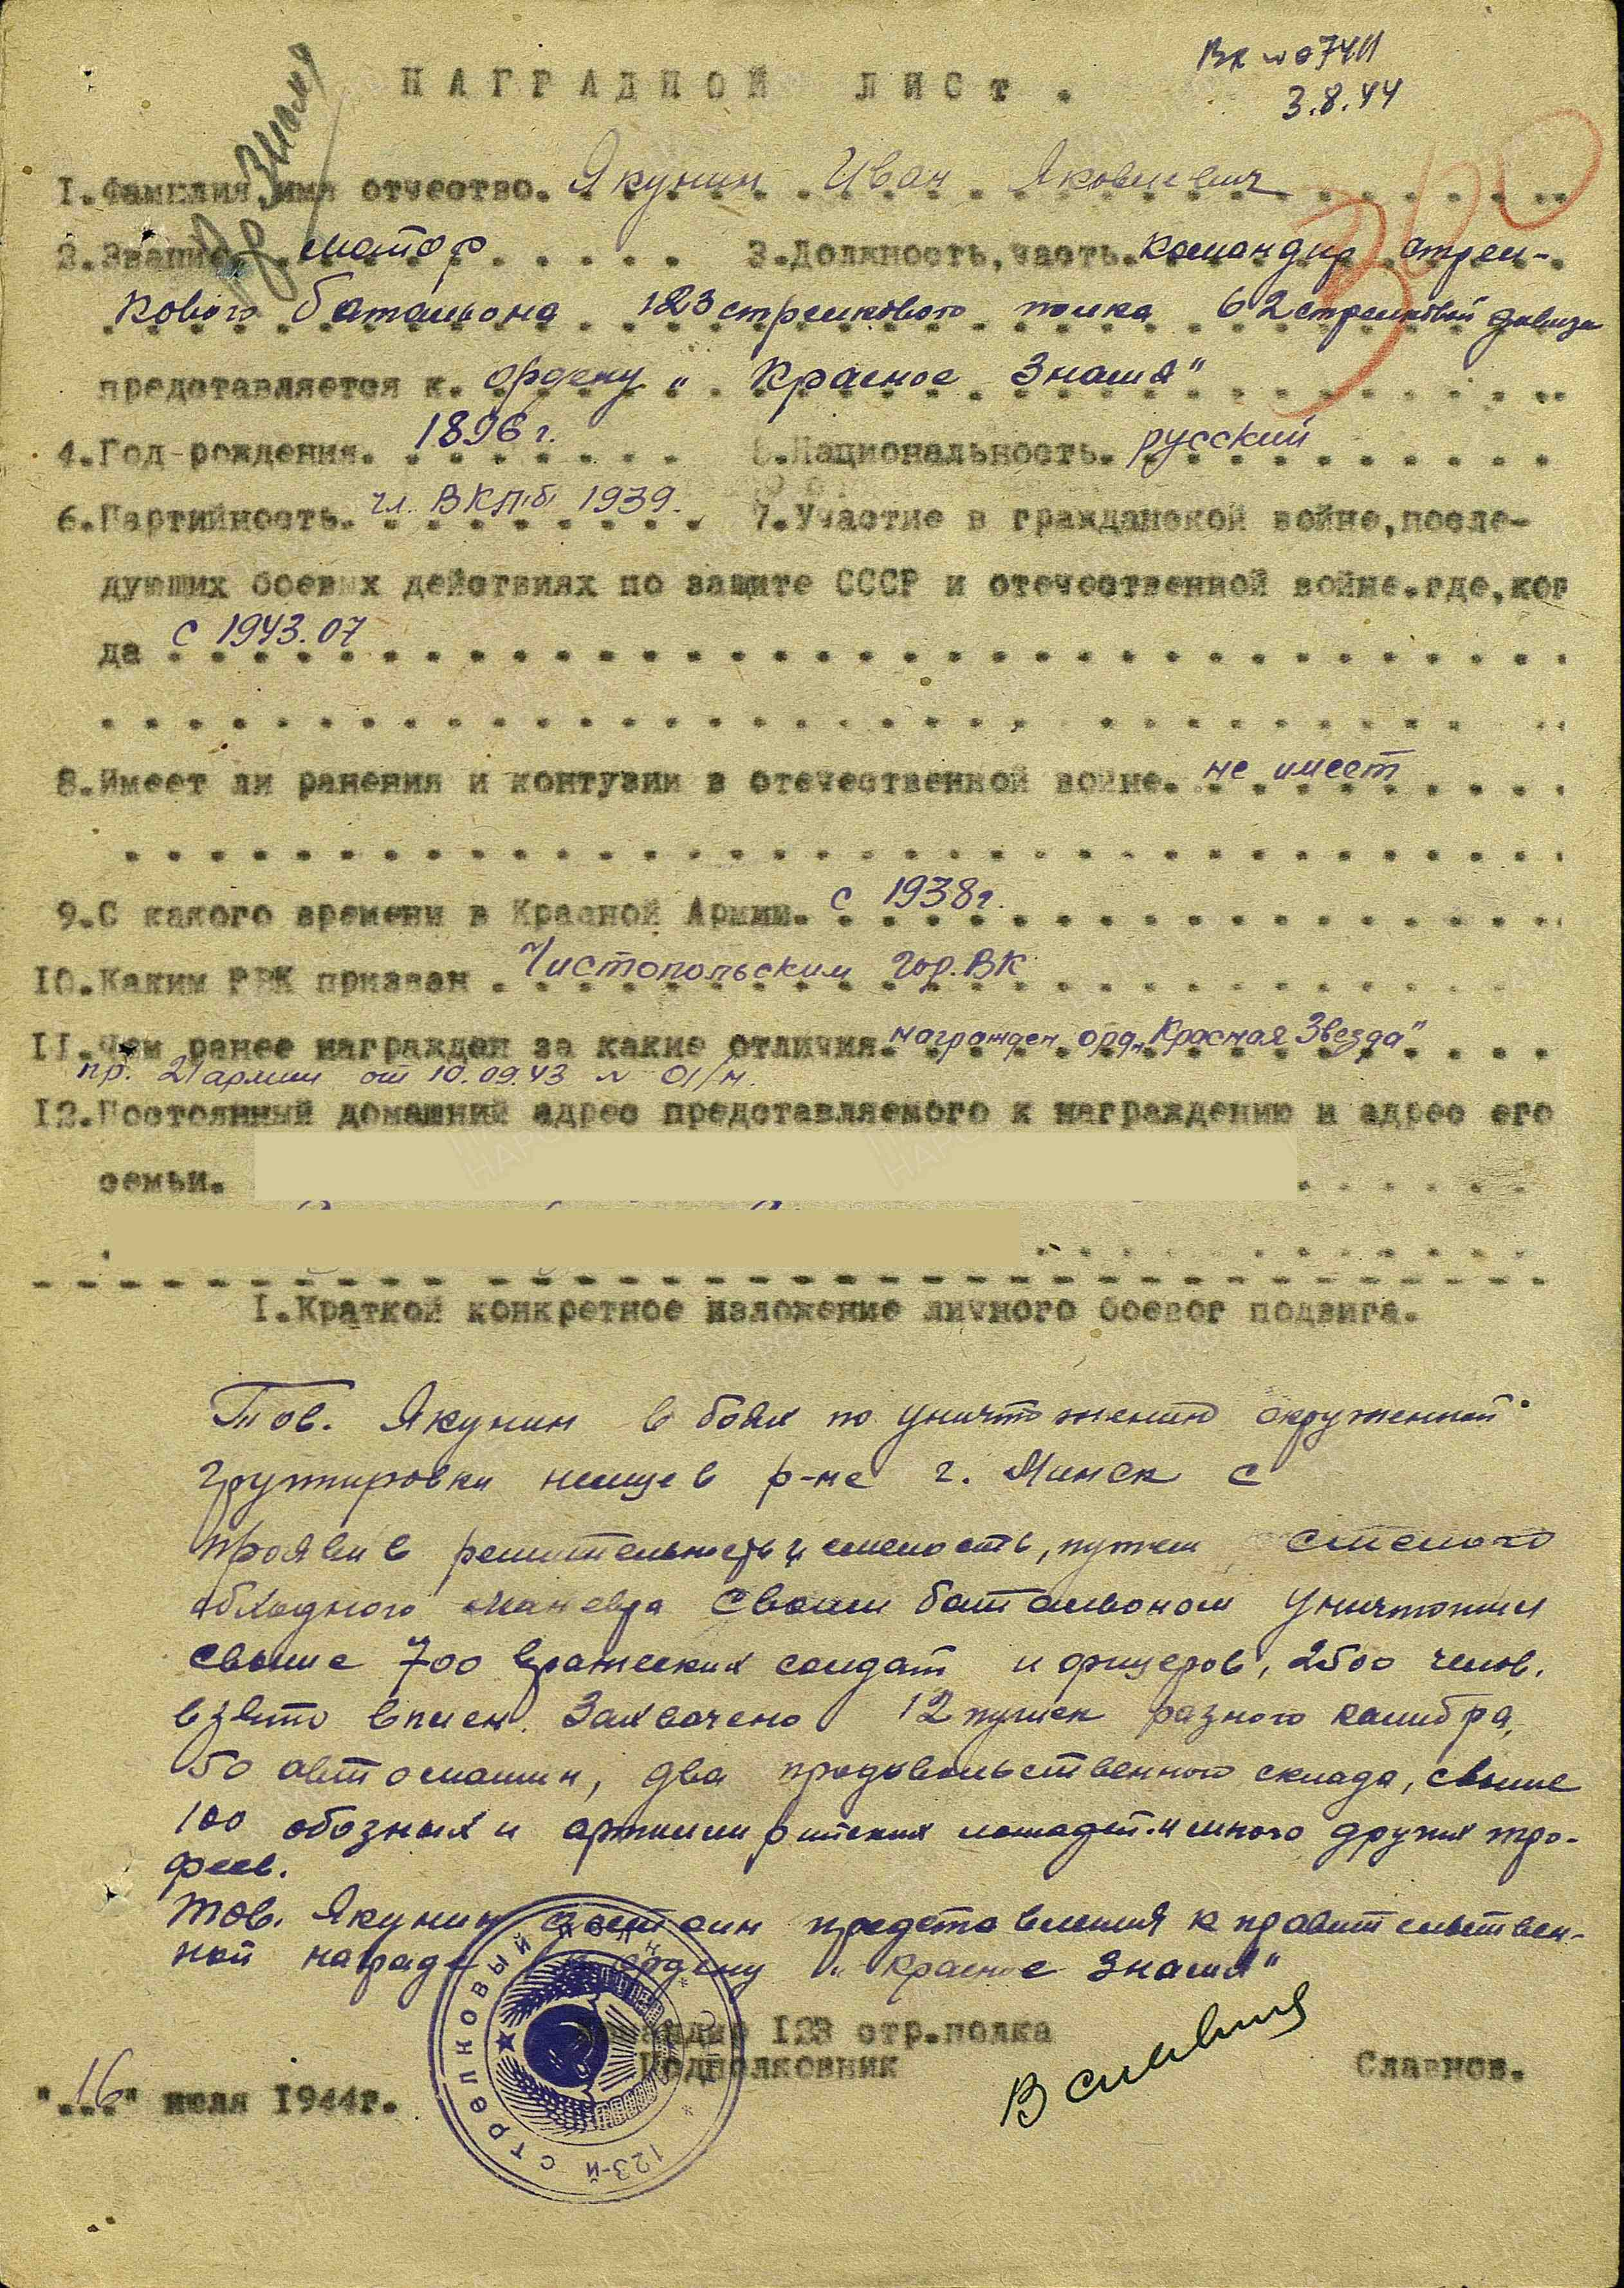 Вх №07411
3.8.44
НАГРАДНОЙ ЛИСТ.
Кр Знамя
360
1.Фамилия, имя отчество. Якунин Иван Яковлевич
2.Звание. майор 3.Должность,часть. командир стрел-
кового батальона 123 стрелкового полка 62 стрелковой дивизи
представляется к. ордену „Красное Знамя"
4.Год рождения. 1896 г. 5.Национальность. русский
6.Партийность. чл. ВКП(б) 1939. 7.Участие в гражданской войне,после-
дующих боевых действиях по защите СССР и отечественной войне.где,ког
да с 1943.07
8.Имеет ли ранения и контузии в отечественной войне. не имеет
9.С какого времени в Красной Армии. с 1938г.
10.Каким РВК призван Чистопольским Гор.ВК
11.Чем ранее награжден за какие отличия. награжден орд. „Красная Звезда"
пр. 21 армии от 10.09.43 № 01/н.
12.Постоянный домашний адрес представляемого к награждению и адрес его
семьи.
I.Краткой конкретное изложение личного боевог подвига.
Тов. Якунин в боях по уничтожению окруженной
группировки немцев р-не г. Минск с
проявив решительность и смелость, путем смелого
обходного маневра своим батальоном уничтожил
свыше 700 вражеских солдат и офицеров, 2500 челов.
взято в плен. Захвачено 12 пушек разного калибра,
50 автомашин, два продовольственного склада, свыше
100 обозных и артиллерийских лошадей и много других тро-
феев.
Тов. Якунин достоин представления к правительствен-
ной награде ордену „Красное Знамя"
Командир 123 стр.полка
Подполковник Славнов.
"16" июля 1944г.
123-й СТРЕЛКОВЫЙ ПОЛК